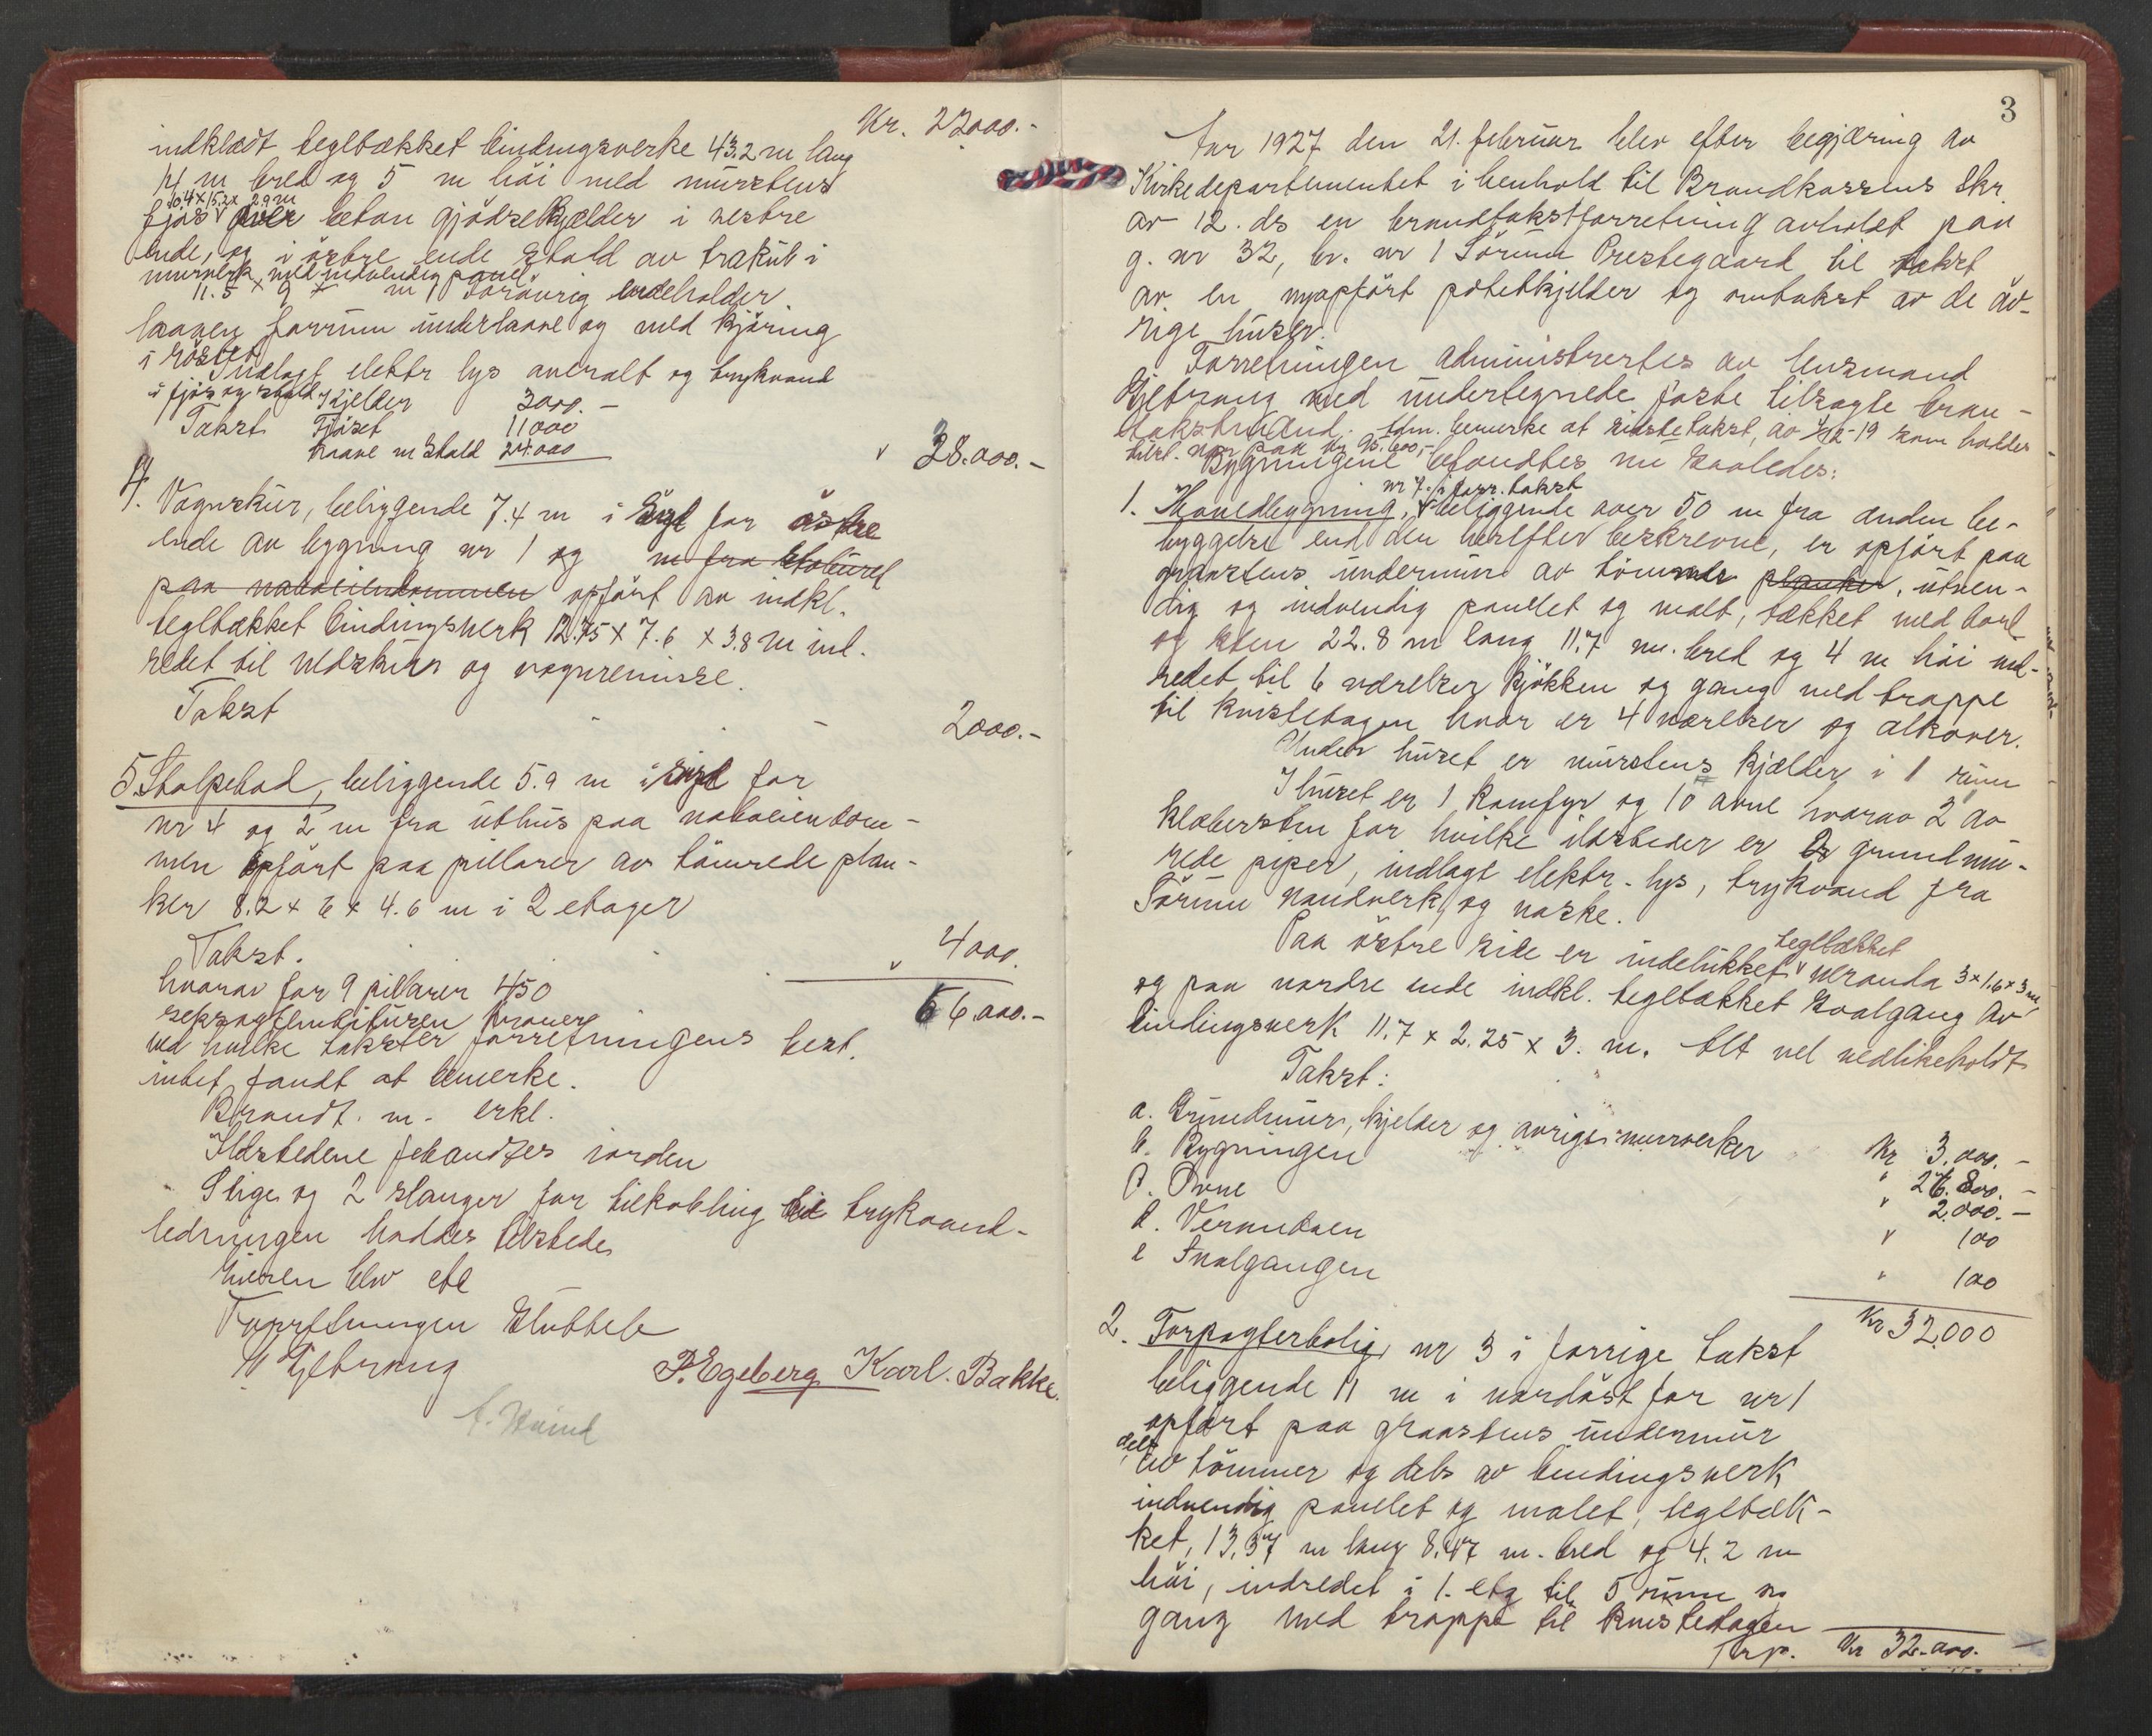 Kr. 22000.-
indklædt tegltækket bindingsverke 43.2 m lang
14 m bred og 5 m höi med murstens
10.4 x 15.2 x 2.9 m
fjös over beton gjödselkjelder i vestre
ende, og i östre ende stald av trækub i
murverk, med indvendig panel
11.5 x 9 x m. Forövrig indeholder
laaven forrum underlaave og med kjöring
i röstet
Indlagt elektr lys overalt og trykvand
i fjös og stald Kjelder 3000.-
Takst Fjöset 11000
Laave m Stald 24.000
" 38.000.-
4. Vognskur, beliggende 7.4 m i syd for östre
ende av bygning nr 1 og m fra stabburet
paa naboeiendommen opfört av indkl.
tegltækket bindingsverk 12.75 x 7.6 x 3.8 m ind-
redet til vedskur og vognremisse.
Takst 2000.-
5. Stolpebod, beliggende 5.9 m i syd for
nr 4 og 2 m fra uthus paa naboeiendom-
men opfört paa pillarer av tömrede plan-
ker 8.2 x 6 x 4.6 m i 2 etager
Takst. " 4000.
hvorav for 9 pillarer 450
66.000.-
ved hvilke takster forretningens best.
intet fandt at bemerke.
Brandt. m. erkl.
Ildstedene befandtes iorden
Stige og 2 slanger for tilkobling til trykvand-
ledningen haddes tilstede
Eieren blev etc
Forretningen sluttet
Gjebrang
P. Egeberg Karl. Bakke.
3
Aar 1927 den 21. februar blev efter begjæring av
Kirkedepartementet i henhold til Brandkassens Skr.
av 12. ds en brandtakstforretning avholdt paa
g. nr 32, br. nr 1 Sörum Prestegaard til takst
av en nyopfört potetkjelder og omtakst av de öv-
rige huser.
Forretningen administrertes av lensmand
Gjebrang med undertegnede faste tilsagte bran-
takstmænd. Adm. bemerke at sidste takst, av 1/12-19 som haddes
tilst. var paa kr 95.600,-
Bygningene befandtes nu saaledes:
nr 7. i forr. takst
1. Hovedbygning, beliggende over 50 m fra anden be-
byggelse end den herefter beskrevne, er opfört paa
graastens undermur av tömmer planker, utven-
dig og indvendig panelet og malt, tækket med bord
og sten 22.8 m lang 11,7 m. bred og 4 m höi ind-
redet til 6 værelser kjökken og gang med trappe
til kvistetagen hvor er 4 værelser og alkover.
Under huset er murstens kjælder i 1 rum
I huset er 1 komfyr og 10 ovne hvorav 2 av
klæbersten for hvilke ildsteder er 2 grundmu-
rede piper, indlagt elektr. lys, trykvand fra
Sörum vandverk, og vaske.
Paa östre side er indelukket tegltækket veranda 3 x 1.6 x 3 m,
og paa nordre ende indkl. tegltækket svalgang av
bindingsverk 11.7 x 2.25 x 3. m. Alt vel vedlikeholdt
Takst:
a. Grundmur, kjelder og övrige murverker Kr 3.000.-
b. Bygningen " 26.800.-
c. Ovne " 2.000.-
d. Verandaen " 100
e Svalgangen " 100
Kr 32.000
2. Forpagterbolig nr 3 i forrige takst
beliggende 11 m i nordöst for nr 1
opfört paa graastens undermur
dels av tömmer og dels av bindingsverk
indvendig panelet og malet, tegltæk-
ket, 13.37 m lang 8.47 m. bred og 4.2 m
höi, indredet i 1. etg til 5 rum og
gang med trappe til kvistetagen
Trsp. Kr 32.000.-